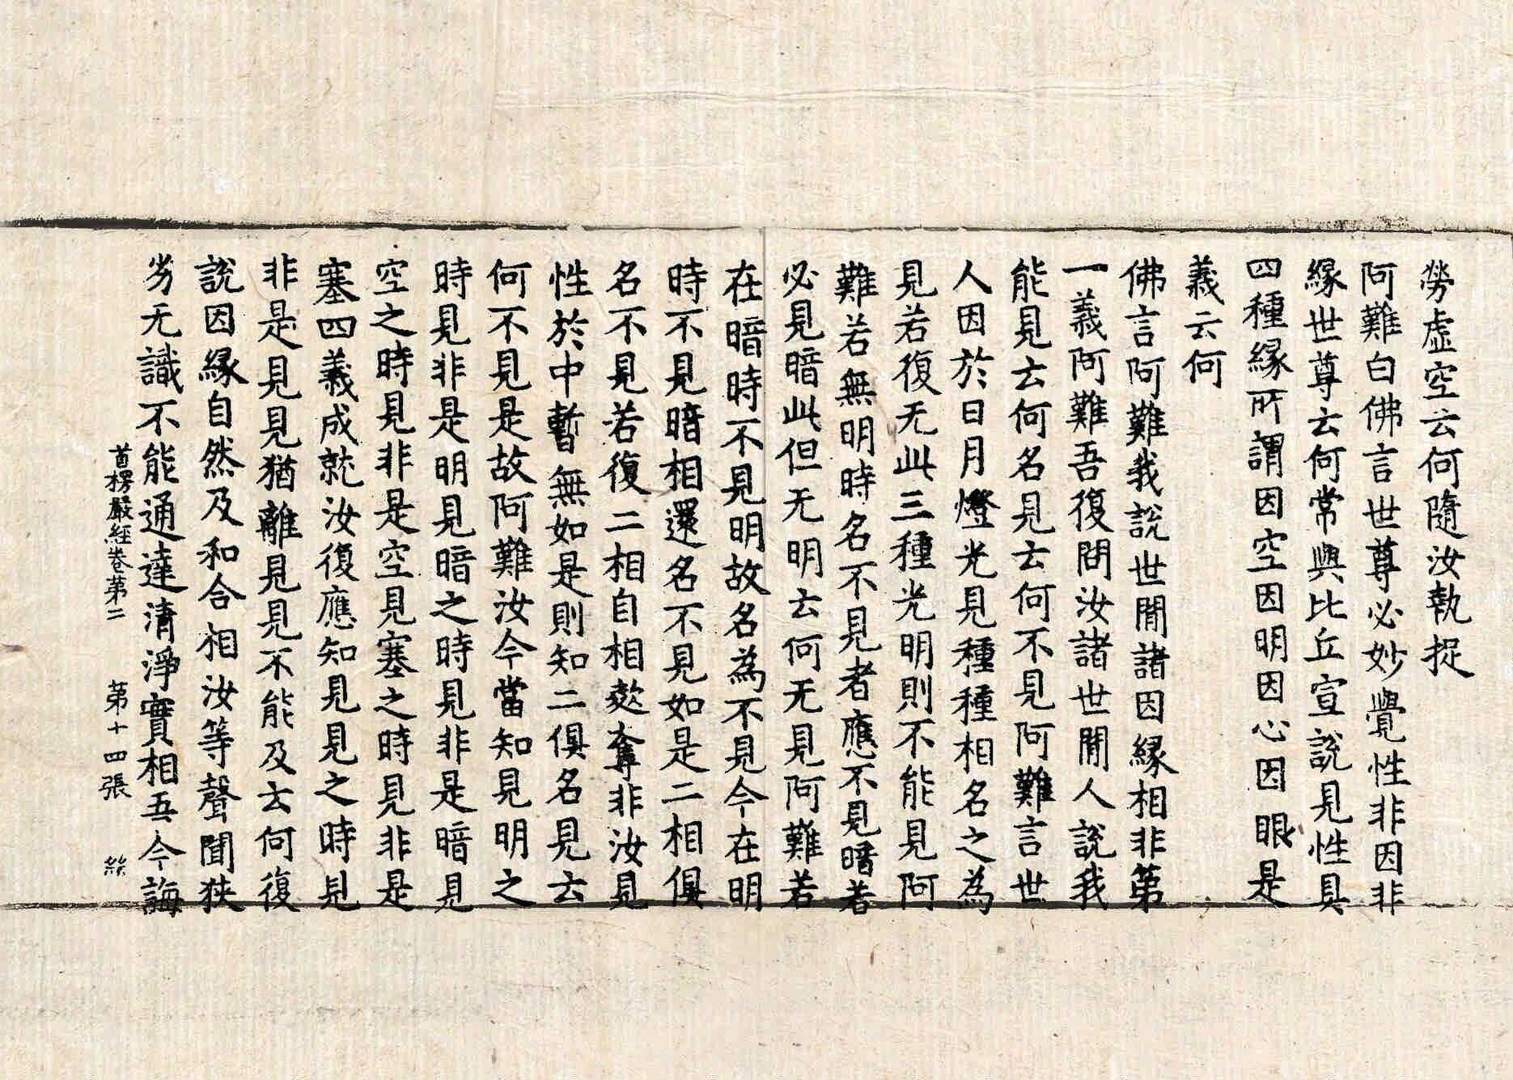 勞虛空云何隨汝執捉
阿難白佛言世尊必妙覺性非因非
緣世尊云何常與比丘宣說見性具
四種緣所謂因空因明因心因眼是
義云何
佛言阿難我說世間諸因緣相非第
一義阿難吾復問汝諸世間人說我
能見云何名見云何不見阿難言世
人因於日月燈光見種種相名之為
見若復无此三種光明則不能見阿
難若無明時名不見者應不見暗若
必見暗此但无明云何无見阿難若
在暗時不見明故名為不見今在明
時不見暗相還名不見如是二相俱
名不見若復二相自相欻奪非汝見
性於中暫無如是則知二俱名見云
何不見是故阿難汝今當知見明之
時見非是明見暗之時見非是暗見
空之時見非是空見塞之時見非是
塞四義成就汝復應知見見之時見
非是見見猶離見見不能及云何復
說因緣自然及和合相汝等聲聞狹
劣无識不能通達清淨實相吾今誨
首楞嚴經卷第二 第十四張 絲